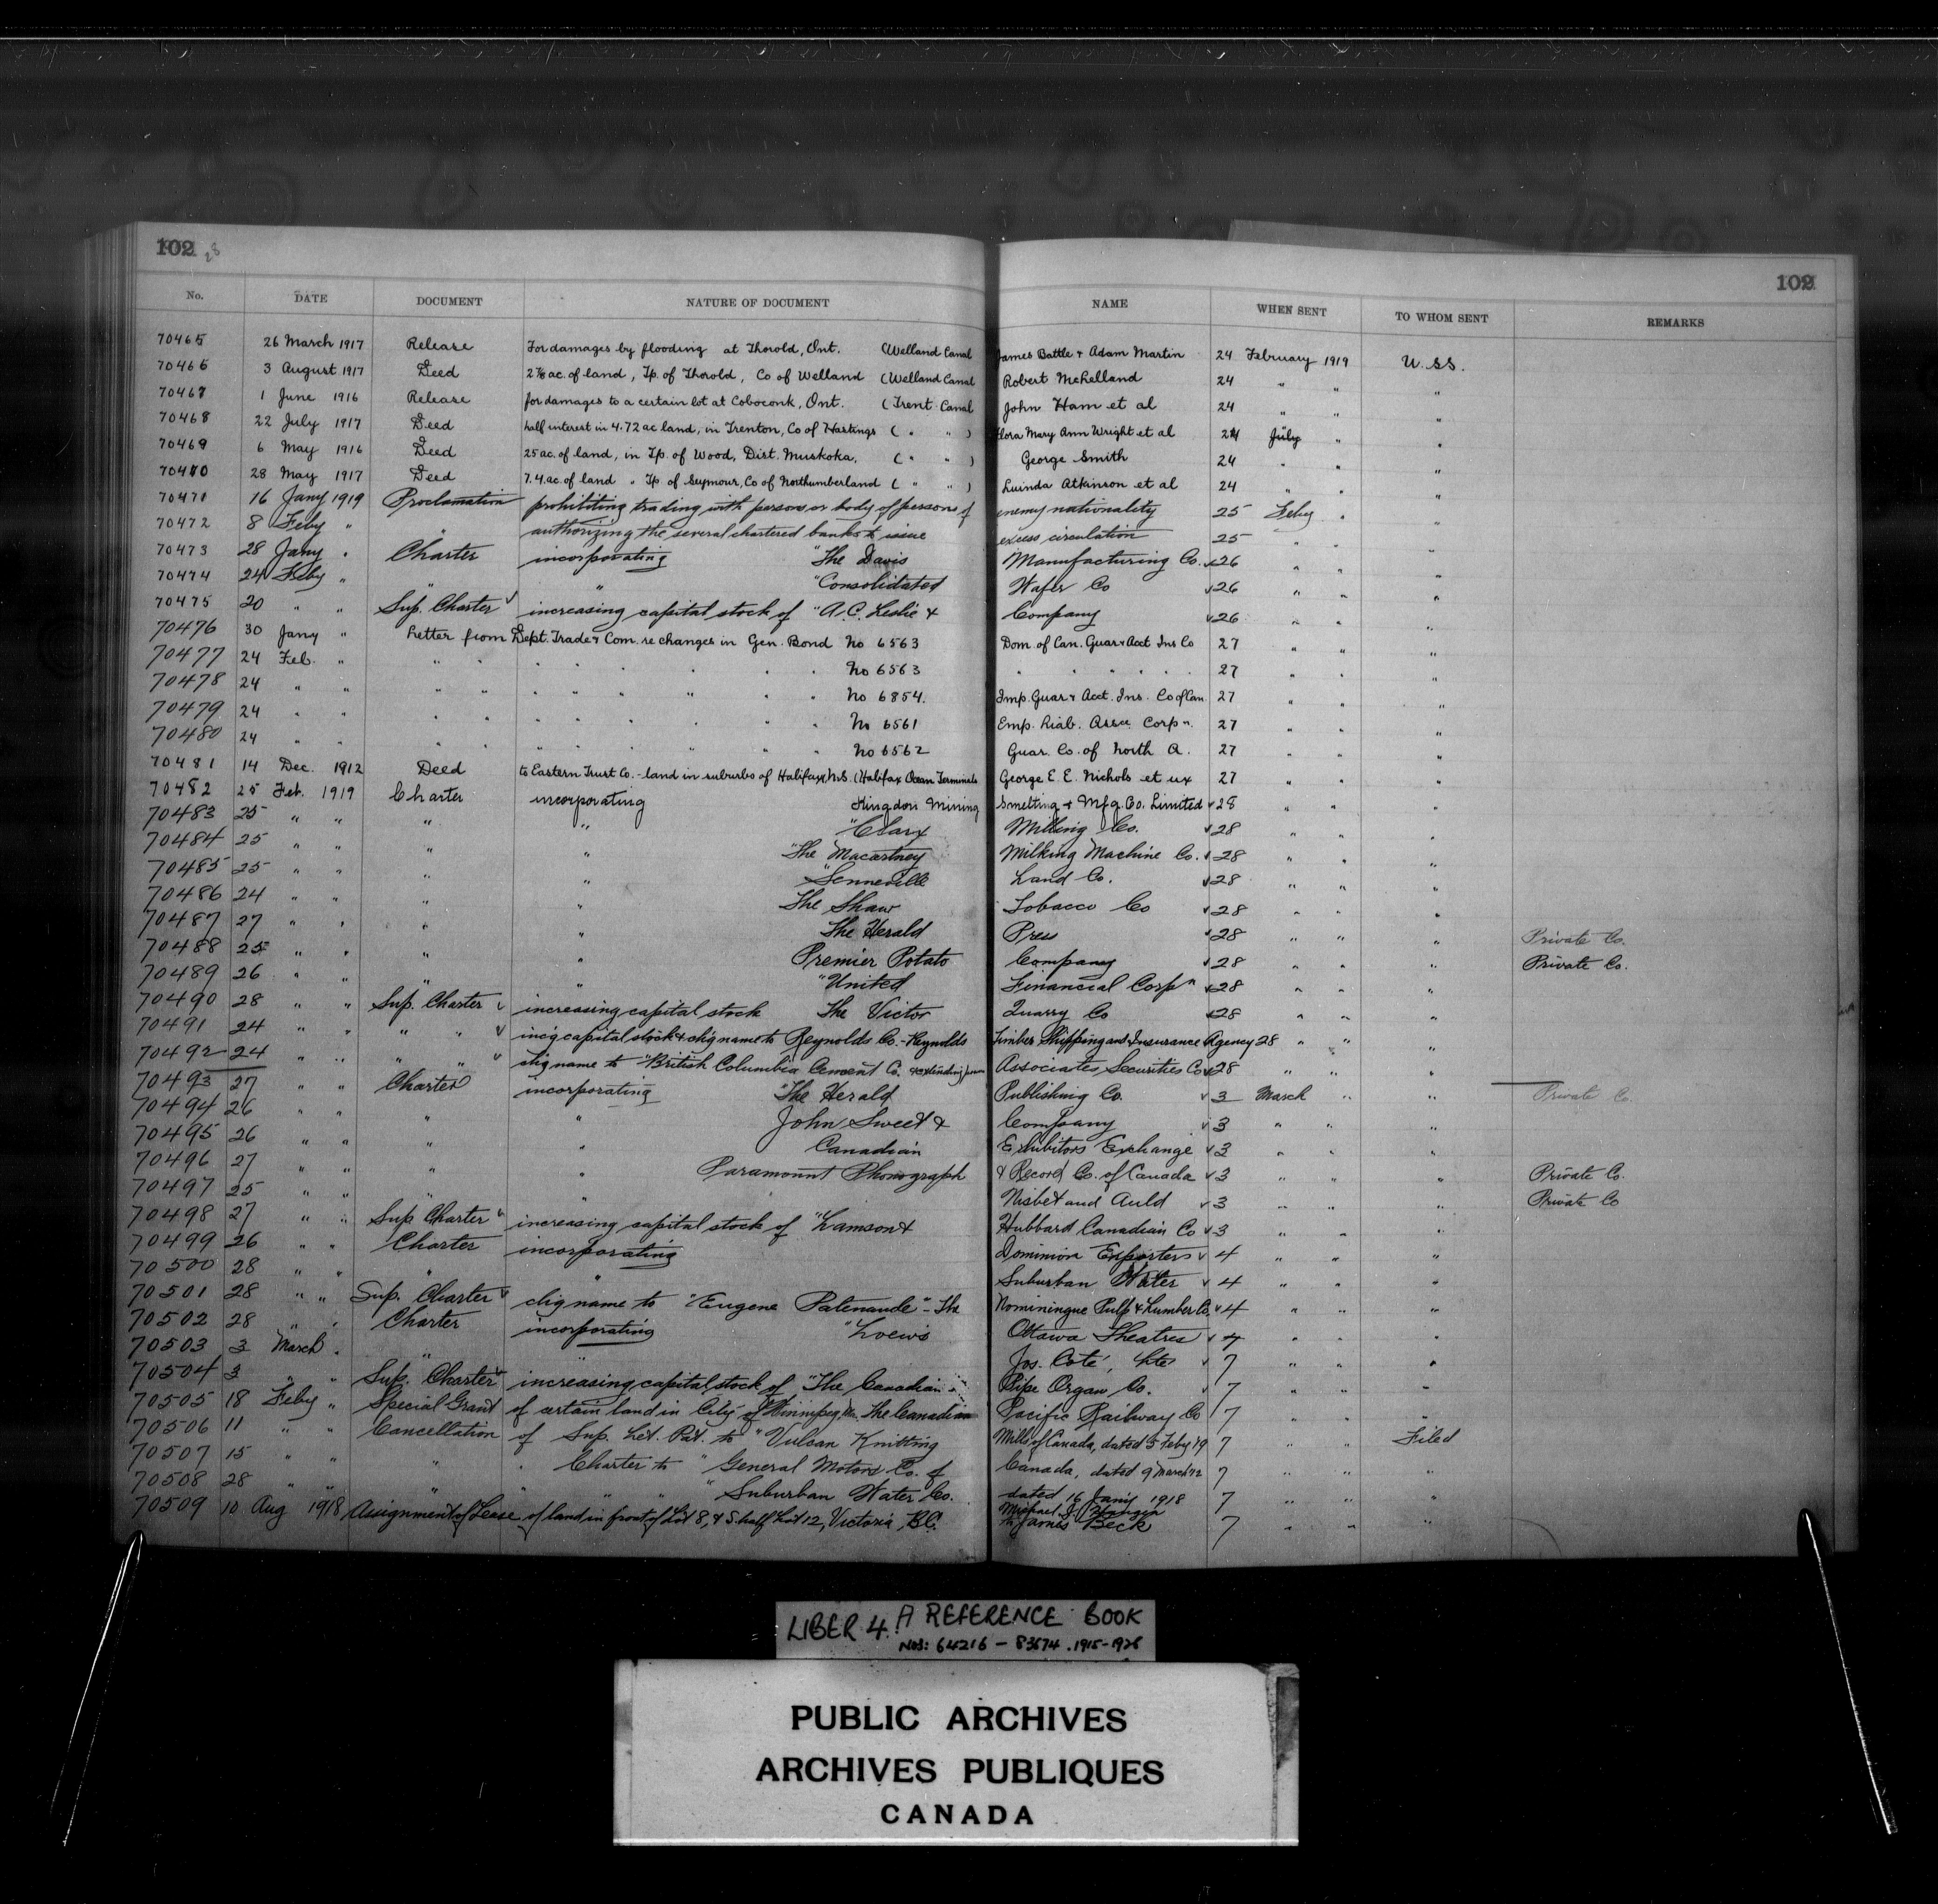 102 28 102
No. DATE DOCUMENT NATURE OF DOCUMENT NAME WHEN SENT TO WHOM SENT REMARKS
70465 26 March 1917 Release For damages by flooding at Thorold, Ont. (Welland Canal James Battle & Adam Martin 24 February 1919 U.SS.
70466 3 August 1917 Deed 2⅞ ac. of land, Tp. of Thorold, Co of Welland (Welland Canal Robert McHelland 24 " " "
70467 1 June 1916 Release for damages to a certain lot at Coboconk, Ont. (Trent Canal John Ham et al 24 " " "
70468 22 July 1917 Deed half interest in 4.72 ac land, in Trenton, Co of Hastings ( " " ) Flora Mary Ann Wright et al 24 July " "
70469 6 May 1916 Deed 25 ac. of land, in Tp. of Wood, Dist. Muskoka, ( " " ) George Smith 24 " " "
70470 28 May 1917 Deed 7.4 ac. of land " Tp of Seymour, Co of Northumberland ( " " ) Luinda Atkinson et al 24 " " "
70471 16 Jany 1919 Proclamation prohibiting trading with persons or body of persons of enemy nationality 25 Feby " "
70472 8 Feby " " authorizing the several chartered banks to issue excess circulation 25 " " "
70473 28 Jany " Charter incorporating "The Davis Manufacturing Co. √26 " " "
70474 24 Feby " " " "Consolidated Wafer Co √26 " " "
70475 20 " " Sup. Charter √ increasing capital stock of "A.C. Leslie & Company √26 " " "
70476 30 Jany " Letter from Dept. Trade & Com. re changes in Gen. Bond No 6563 Dom. of Can. Guar & Acct Ins Co 27 " " "
70477 24 Feb. " " " " " " " " " No 6563 " " " " " 27 " " "
70478 24 " " " " " " " " " " No 6854. Imp. Guar & Acct. Ins. Co of Can. 27 " " "
70479 24 " " " " " " " " " " No 6561 Emp. Liab. Assce Corpn. 27 " " "
70480 24 " " " " " " " " " " No 6562 Guar. Co. of North A. 27 " " "
70481 14 Dec. 1912 Deed to Eastern Trust Co. - land in suburbs of Halifax, N.S. (Halifax Ocean Terminals George E. E. Nichols et ux 27 " " "
70482 25 Feb. 1919 Charter incorporating Kingdon Mining Smelting & Mfg. Co. Limited √28 " " "
70483 25 " " " " "Clarx Milling Co. √28 " " "
70484 25 " " " " "The Macartney Milking Machine Co. √28 " " "
70485 25 " " " " "Senneville Land Co. √28 " " "
70486 24 " " " " The Shaw Tobacco Co √28 " " "
70487 27 " " " " The Herald Press √28 " " " Private Co.
70488 25 " " " " Premier Potato Company √28 " " " Private Co.
70489 26 " " " " "United Financial Corpn √28 " " "
70490 28 " " Sup. Charter √ increasing capital stock The Victor Quarry Co √28 " " "
70491 24 " " " " √ incg capital stock & chg name to Reynolds Co. - Reynolds Timber Shipping and Insurance Agency 28 " " "
70492 24 " " " " " chg name to "British Columbia Cement Co. & extending powers Associates Securities Co √28 " " "
70493 27 " " Charter incorporating "The Herald Publishing Co. √3 March " " Private Co.
70494 26 " " " " John Sweet & Company √3 " " "
70495 26 " " " " Canadian Exhibitors Exchange √3 " " "
70496 27 " " " " Paramount Phonograph & Record Co. of Canada √3 " " " Private Co.
70497 25 " " " " Nisbet and Auld √3 " " " Private Co
70498 27 " " Sup Charter √ increasing capital stock of "Lamson & Hubbard Canadian Co √3 " " "
70499 26 " " Charter incorporating Dominion Exporters √ 4 " " "
70500 28 " " " " Suburban Water √ 4 " " "
70501 28 " " Sup. Charter √ chg name to "Eugene Patenaude" - The Nominingue Pulp & Lumber Co. √4 " " "
70502 28 " " Charter incorporating "Loew's Ottawa Theatres √ 4 " " "
70503 3 March " " " Jos. Coté, Ltée √ 7 " " "
70504 3 " " Sup. Charter √ increasing capital stock of "The Canadian Pipe Organ Co. √ 7 " " "
70505 18 Feby " Special Grant of certain land in City of Winnipeg, Mn. The Canadian Pacific Railway Co 7 " " "
70506 11 " " Cancellation of Sup. Let. Pat. to "Vulcan Knitting Mills of Canada, dated 5 Feby '19 7 " " Filed
70507 15 " " " " Charter to "General Motors Co. of Canada, dated 9 March '12 7 " " "
70508 28 " " " " " " "Suburban Water Co. dated 16 Jany 1918 7 " " "
70509 10 Aug 1918 Assignment of Lease of land in front of Lot 8, & S. half Lot 12, Victoria, B.C. Michael J. to James Beck 7 " " "
LIBER 4. A REFERENCE BOOK
NOS: 64216 - 83674. 1915-1928
PUBLIC ARCHIVES
ARCHIVES PUBLIQUES
CANADA